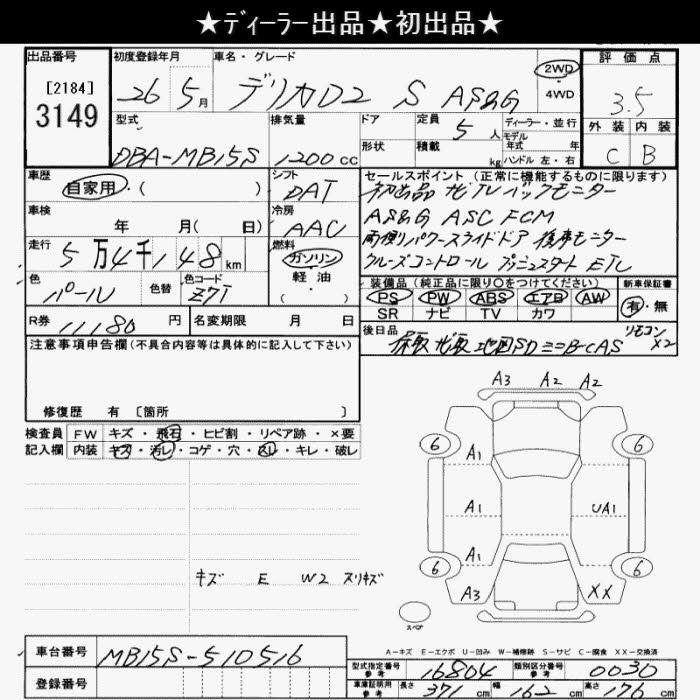 ★ディーラー出品★初出品★
出品番号 初度登録年月 車名・グレード 評価点
[2184] 26 5月 デリカD2 S AS&G 2WD ・ 4WD 3.5
3149
外装 内装
C B
型式 排気量 ドア 定員 ディーラー・並行
DBA-MB15S 1200cc 5人 モデル年式 年
形状 積載 kg ハンドル 左・右
車歴 シフト セールスポイント(正常に機能するものに限ります)
自家用・( ) DAT 初出品 ナビTV バックモニター
車検 冷房 AS&G ASC FCM
年 月( 日) AAC 両側パワースライドドア 後席モニター
走行 燃料 クルーズコントロール プッシュスタート ETC
5万4千148km ガソリン・軽油・( )
色 色替 色コード 装備品(純正品に限り〇をつけてください) 新車保証書
パール Z7T PS PW ABS エアB AW 有・無
SR ナビ TV カワ
R券 11180円 名変期限 月 日 後日品 リモコン×2
保取 ナビ取 地図SD ミニB-CAS
注意事項申告欄(不具合内容等は具体的に記入して下さい)
修復歴 有 [箇所 ]
検査員 FW キズ・飛石・ヒビ割・リペア跡・×要
記入欄 内装 キズ・汚レ・コゲ・穴・スレ・キレ・破レ
A3 A2 A2
6 6
A1
A1 UA1
A1
6 6
A3 XX
スペア
キズ E W2 スリキズ
A-キズ E-エクボ U-凹み W-補修跡 S-サビ C-腐食 XX-交換済
車台番号 MB15S-510516
型式指定番号 参考 16804 類別区分番号 参考 0030
登録番号
車庫証明用 参考 長さ 371cm 幅 162cm 高さ 176cm